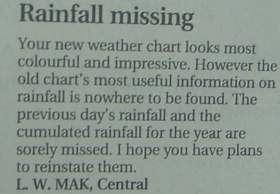 Rainfall missing
Your new weather chart looks most
colourful and impressive. However the
old chart's most useful information on
rainfall is nowhere to be found. The
previous day's rainfall and the
cumulated rainfall for the year are
sorely missed. I hope you have plans
to reinstate them.
L. W. MAK, Central